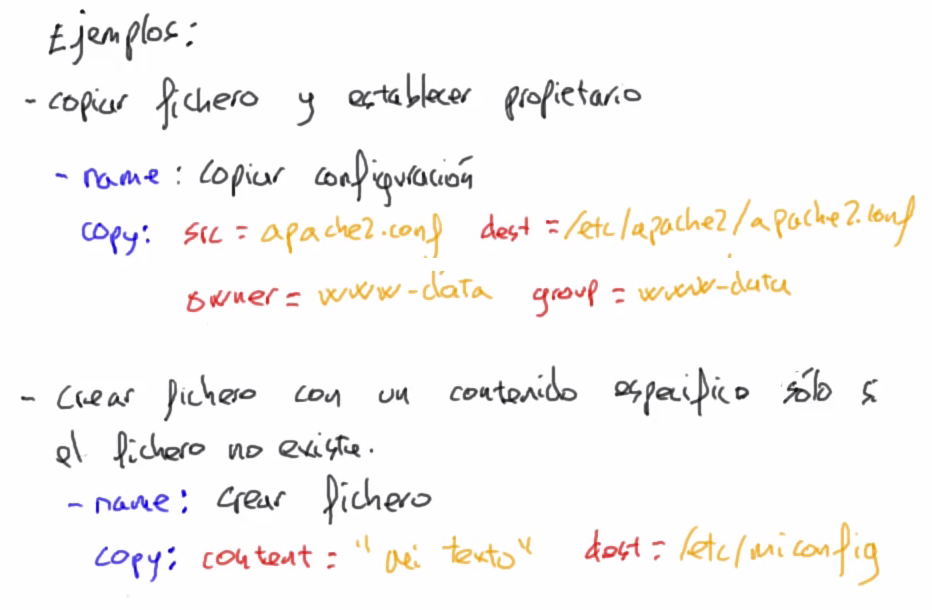 Ejemplos:
- copiar fichero y establecer propietario
- name: Copiar configuración
copy: src = apache2.conf dest = /etc/apache2/apache2.conf
owner = www-data group = www-data
- Crear fichero con un contenido especifico sólo si
el fichero no existe.
- name: Crear fichero
copy: content = "mi texto" dest = /etc/miconfig